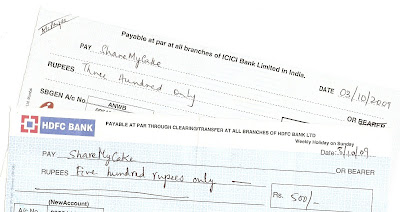 A/c Payee
Payable at par at all branches of ICICI Bank Limited in India.
PAY ShareMyCake DATE 03/10/2009
RUPEES Three Hundred only OR BEARER
SBGEN A/c No ANWB
HDFC BANK PAYABLE AT PAR THROUGH CLEARING/TRANSFER AT ALL BRANCHES OF HDFC BANK LTD
Weekly Holiday on Sunday
PAY ShareMyCake Date: 5/10/09
OR BEARER
RUPEES Five hundred rupees only Rs. 500/-
(NewAccount)
A/c No